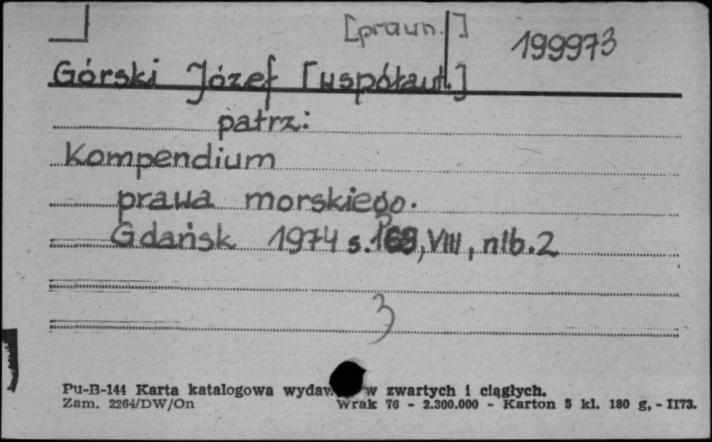 [praun.]
199973
Górski Józef [współaut.]
patrz:
Kompendium
prawa morskiego.
Gdańsk 1974 s. , VIII, nlb. 2
3
Pu-B-144 Karta katalogowa w zwartych i ciągłych.
Zam. 2264/DW/On Wrak 76 - 2.300.000 - Karton 5 kl. 180 g, - II73.